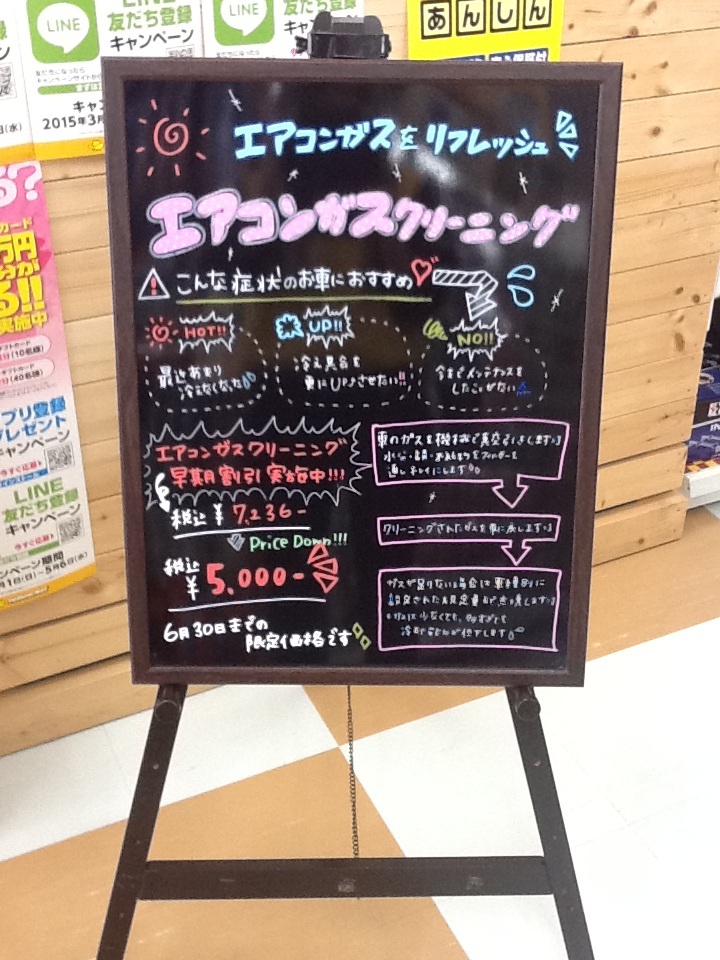 LINE
友だち登録
キャンペーン
2015年3月
あんしん
エアコンガスをリフレッシュ
エアコンガスクリーニング
こんな症状のお車におすすめ
HOT!!
最近あまり
冷えなくなった
UP!!
冷え具合を
更にUPさせたい!!
NO!!
今までメンテナンスを
したことがない
エアコンガスクリーニング
早期割引実施中!!!
税込¥7,236-
Price Down!!!
税込
¥5,000-
6月30日までの
限定価格です
車のガスを機械で真空引きします
水分・
通しキレイにします
クリーニングされたガスを車に戻します
ガスが足りない場合は車種別に
設定された規定量まで
少なくても、多すぎても
冷却
万円
分が
る!!
実施中
(10名様)
(40名様)
プリ登録
レゼント
ャンペーン
今すぐ応募
LINE
友だち登録
キャンペーン
今すぐ応募
ペーン期間
月1日(日)~5月6日(水)